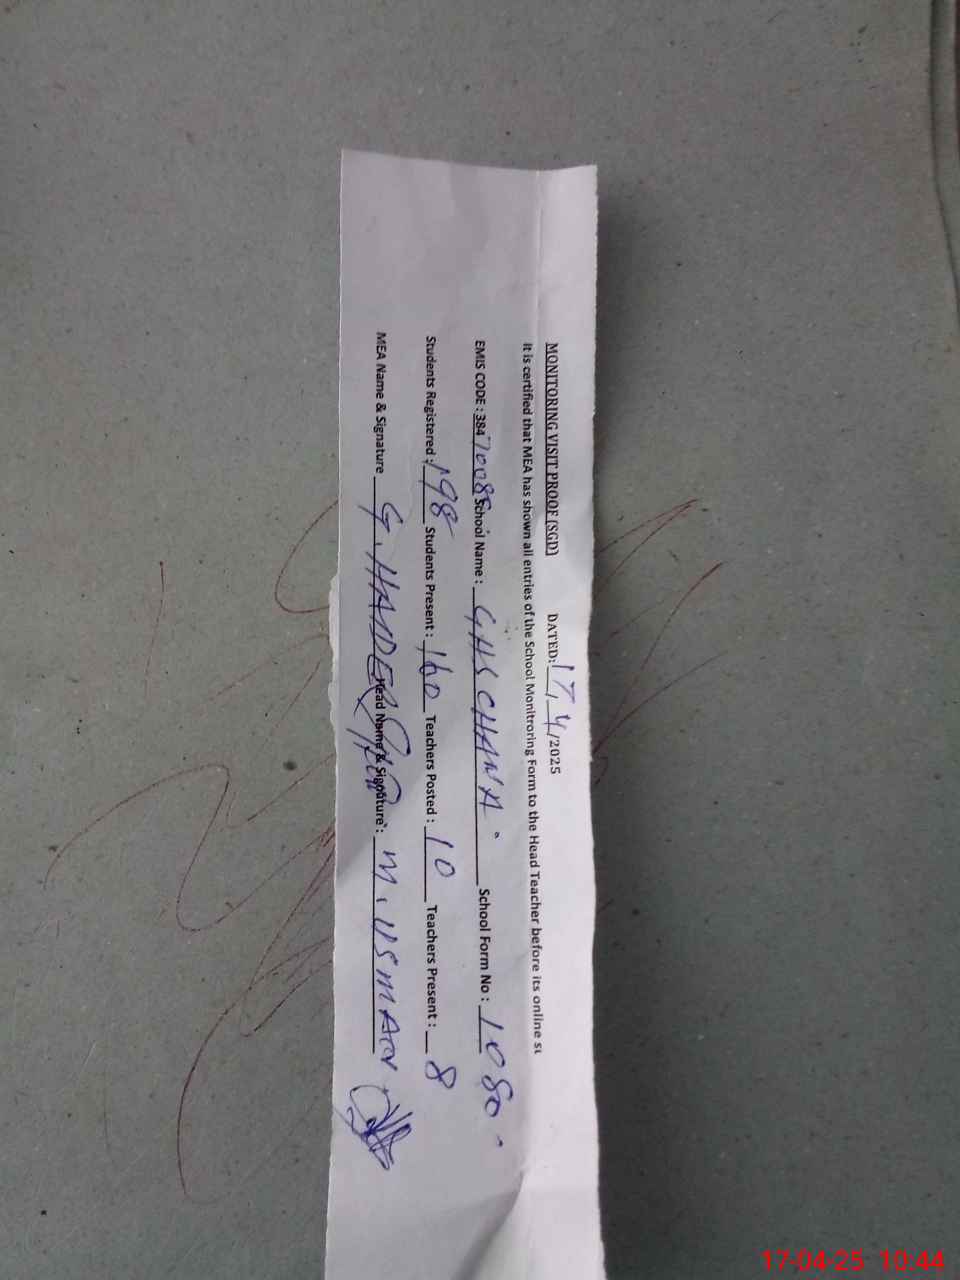 MONITORING VISIT PROOF (SGD) DATED: 17/4/2025
It is certified that MEA has shown all entries of the School Monitroring Form to the Head Teacher before its online su
EMIS CODE : 38470085 School Name : GHS CHAWA School Form No : 1080
Students Registered : 198 Students Present : 160 Teachers Posted : 10 Teachers Present : 8
MEA Name & Signature G. HAIDER Head Name & Signature : M. USMAN
17-04-25 10:44